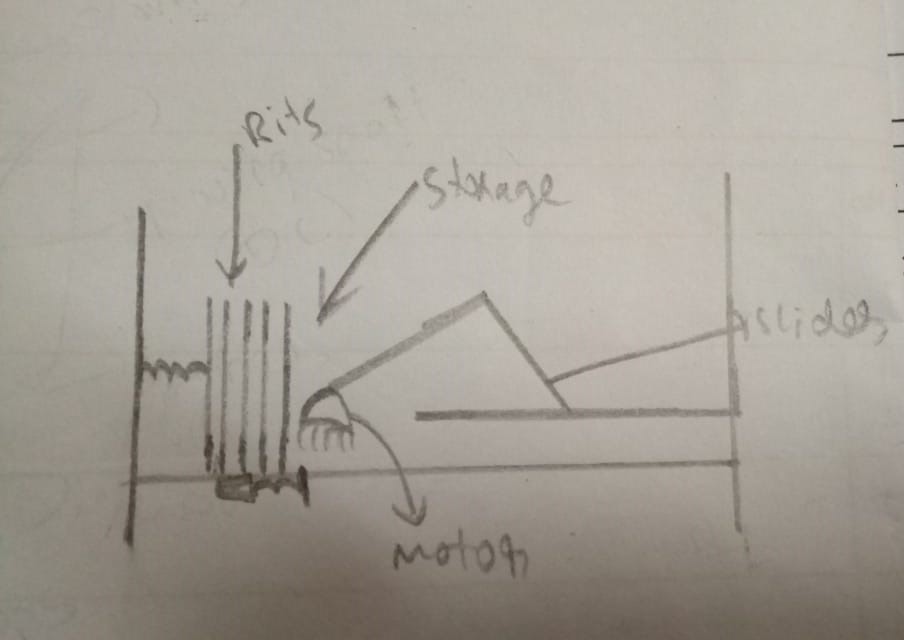 Rits
Storage
slider
Motor